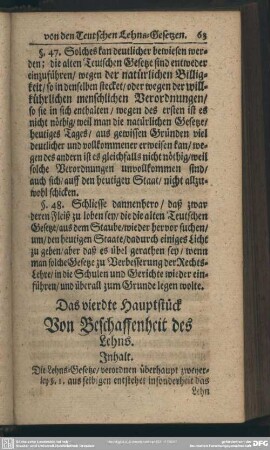 von den Teutschen Lehns-Gesetzen. 63
§. 47. Solches kan deutlicher bewiesen wer-
den; die alten Teutschen Gesetze sind entweder
einzuführen/ wegen der natürlichen Billig-
keit/ so in denselben stecket/ oder wegen der will-
kührlichen menschlichen Verordnungen/
so sie in sich enthalten/ wegen des ersten ist es
nicht nöthig/ weil man die natürlichen Gesetze/
heutiges Tages/ aus gewissen Gründen viel
deutlicher und vollkommener erweisen kan/ we-
gen des andern ist es gleichfalls nicht nöthig/ weil
solche Verordnungen unvollkommen sind/
auch sich/ auff den heutigen Staat/ nicht allzu-
wohl schicken.
§. 48. Schliesse dannenhero/ daß zwar
deren Fleiß zu loben sey/ die die alten Teutschen
Gesetze/ aus dem Staube/ wieder hervor suchen/
um/ den heutigen Staate/ dadurch einiges Licht
zu geben/ aber daß es übel gerathen sey/ wenn
man solche Gesetze zu Verbesserung der Rechts-
Lehre/ in die Schulen und Gerichte wieder ein-
führen/ und überall zum Grunde legen wolte.
Das vierdte Hauptstück
Von Beschaffenheit des
Lehns.
Inhalt.
Die Lehns-Gesetze/ verordnen überhaupt zweyer-
ley §. 1. aus selbigen entstehet insonderheit das
Lehn